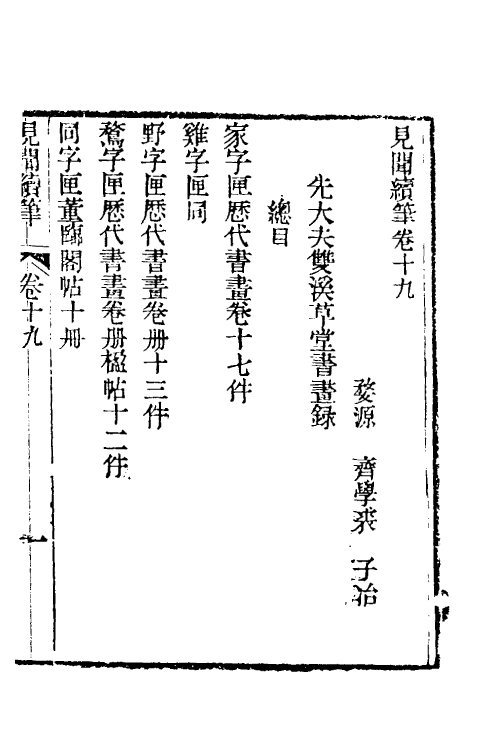 見聞續筆卷十九
婺源　齊學裘　子冶
先大夫雙溪草堂書畫錄
總目
家字匣歷代書畫卷十七件
雞字匣同
野字匣歷代書畫卷册十三件
鶩字匣歷代書畫卷册楹帖十二件
同字匣董臨閣帖十册
見聞續筆　卷十九　一